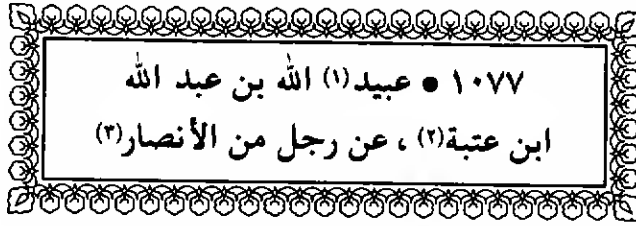 ١٠٧٧ ● عبيد(١) الله بن عبد الله
ابن عتبة(٢) ، عن رجل من الأنصار(٣)